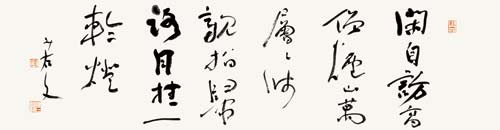 閑自訪高
僧煙山萬
層々師
親指歸
路月挂一
輪燈